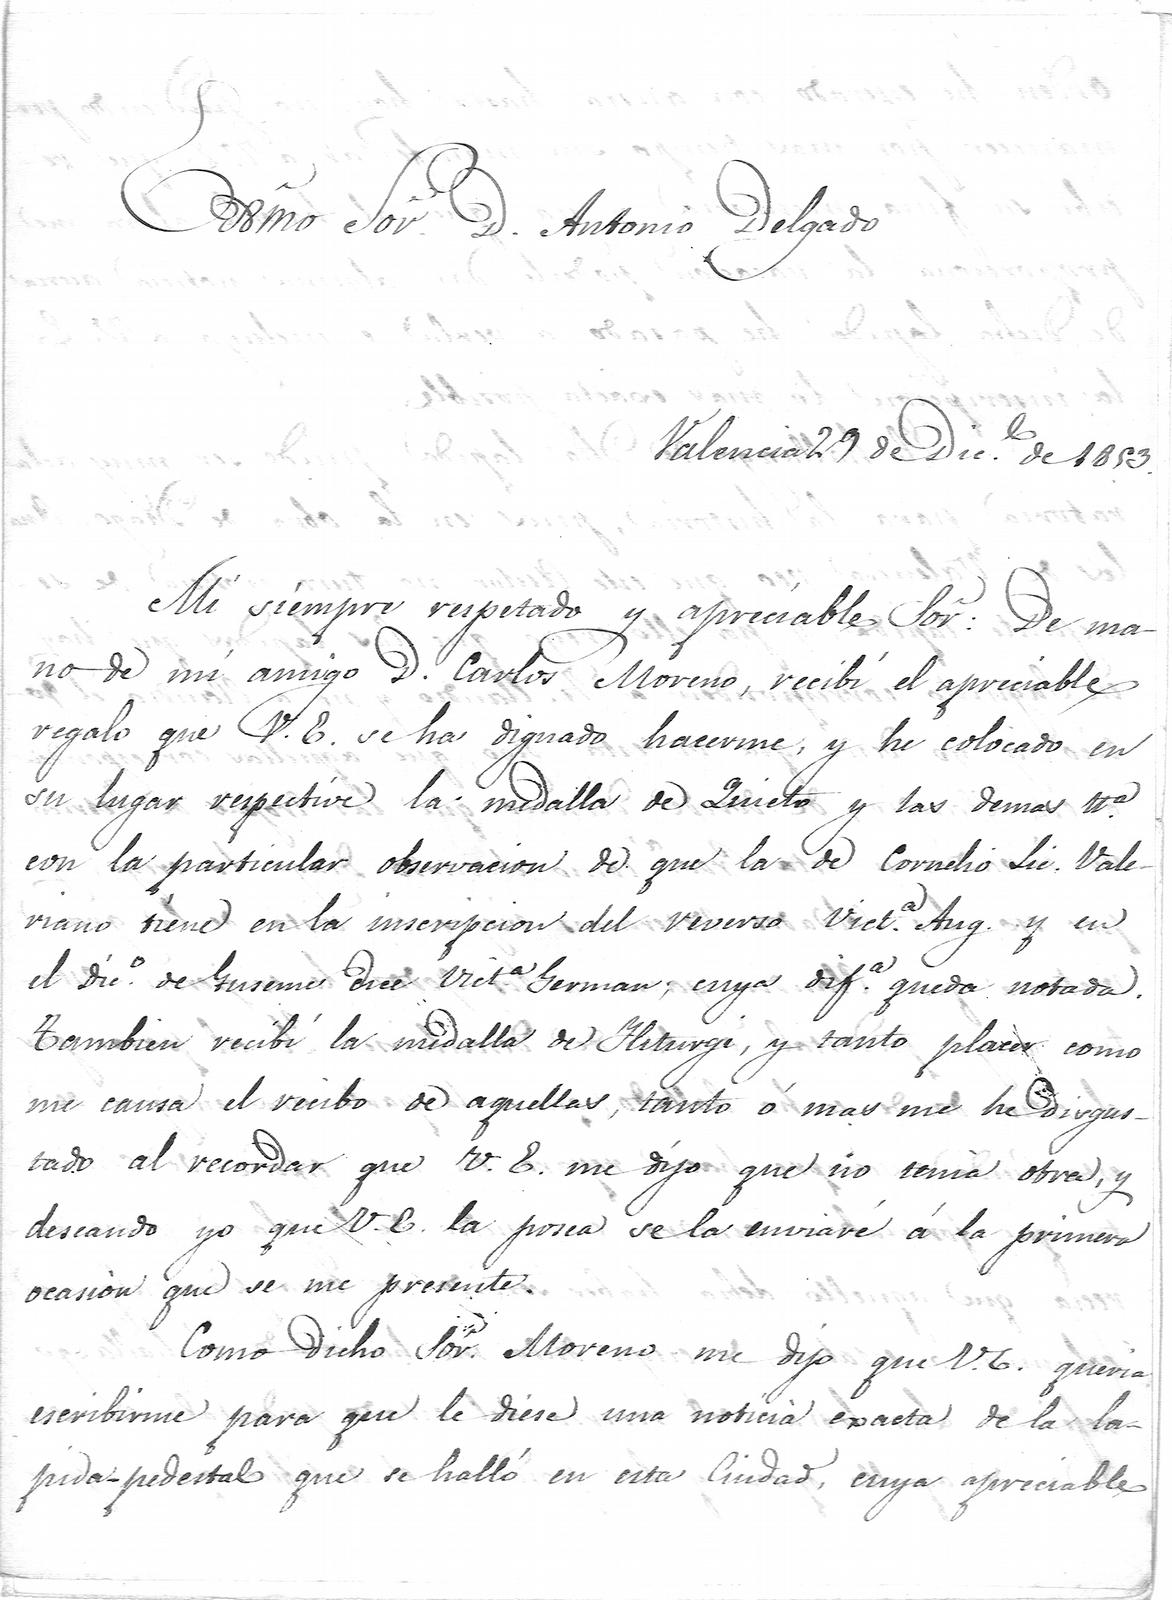 Exmo Sor. D. Antonio Delgado
Valencia 29 de Dic.e de 1853.
Mi siempre respetado y apreciable Sor: De ma-
no de mi amigo D. Carlos Moreno, recibí el apreciable
regalo que V. E. se ha dignado hacerme, y he colocado en
su lugar respective la medalla de Quieto y las demas
con la particular observacion de que la de Cornelio Lic. Vale-
riano tiene en la inscripcion del reverso Vict.a Aug. y en
el Dic.o de Guseme dice Vict.a German; cuya dif.a queda notada.
Tambien recibí la medalla de Iliturgi, y tanto placer como
me causa el recibo de aquellas, tanto ó mas me he disgus-
tado al recordar que V. E. me dijo que no tenia otra, y
deseando yo que V. E. la posea se la enviaré á la primera
ocasion que se me presente.
Como dicho Sor. Moreno me dijo que V. E. queria
escribirme para que le diese una noticia exacta de la la-
pida-pedestal que se halló en esta Ciudad, cuya apreciable